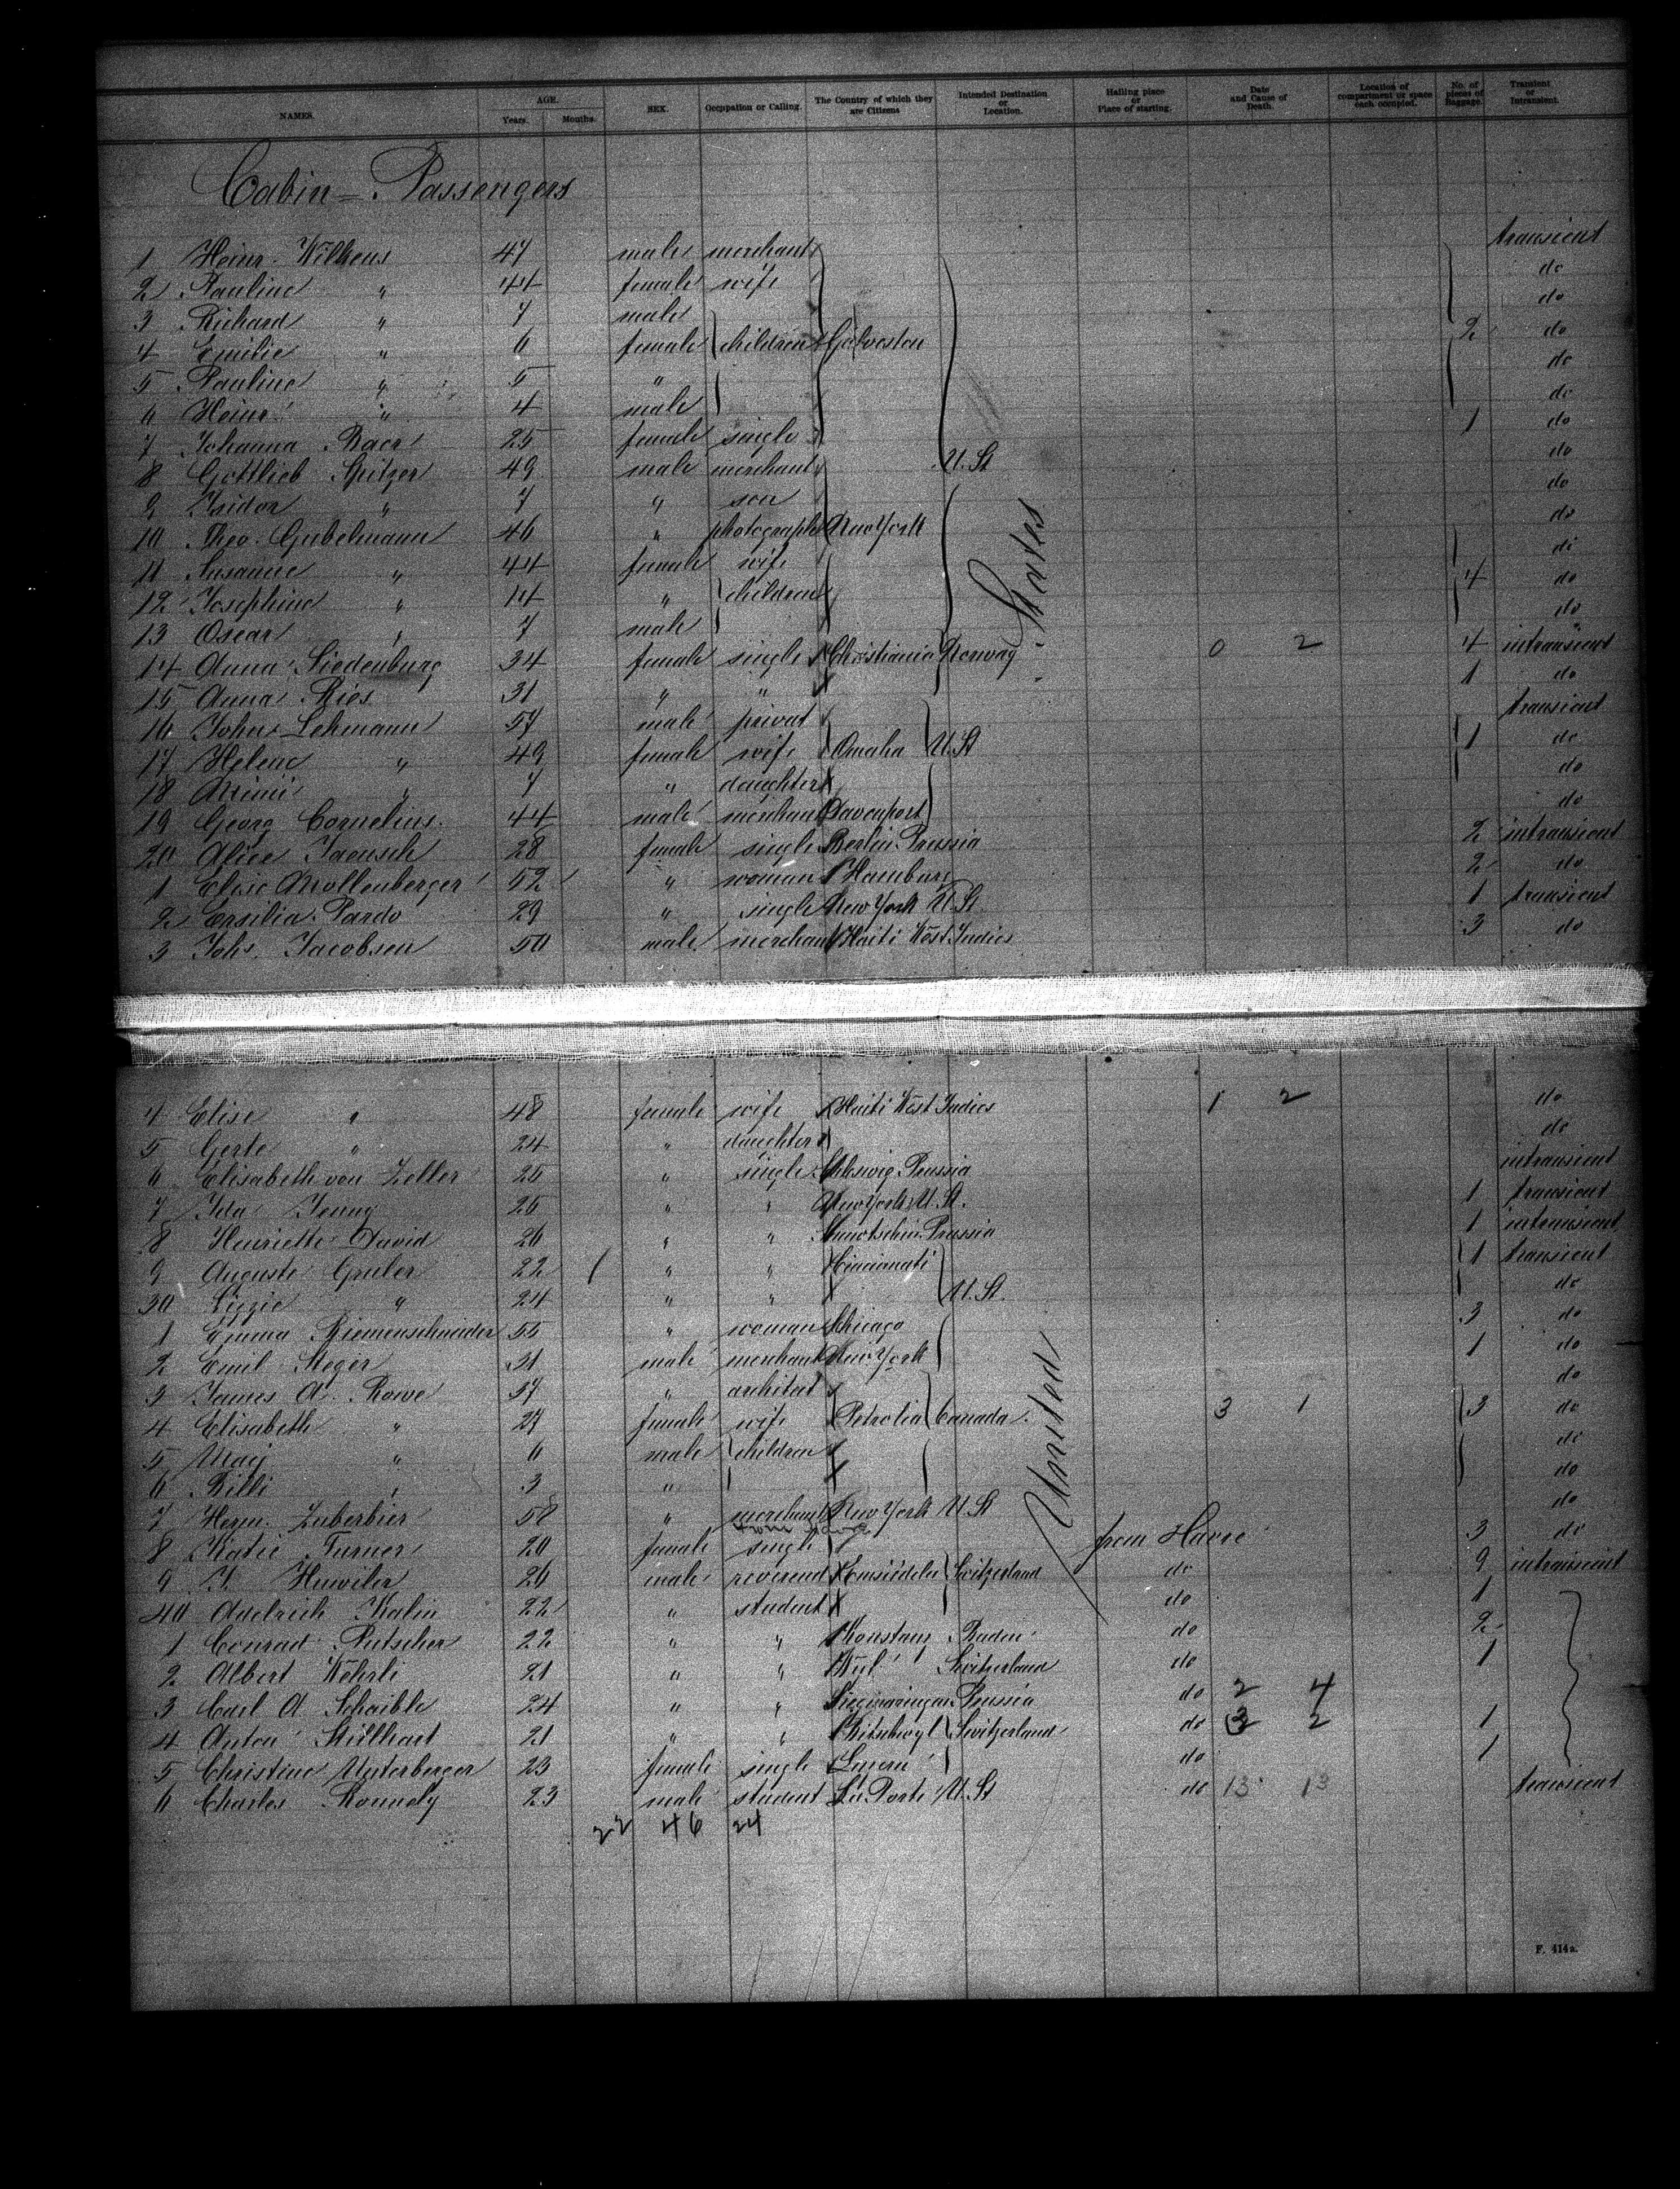 NAMES. AGE. Years. Months. SEX. Occupation or Calling. The Country of which they are Citizens Intended Destination or Location. Hailing place or Place of starting. Date and Cause of Death. Location of compartment or space each occupied. No. of pieces of Baggage. Transient or Intransient.
Cabin = Passengers
1 Heinr. Wilkens 47 male merchant transient
2 Pauline " 44 female wife do
3 Richard " 7 male do
4 Emilie " 6 female children Galveston 2 do
5 Pauline " 5 " do
6 Heinr. " 4 male do
7 Johanna Baer 25 female single 1 do
8 Gottlieb Spitzer 49 male merchant U. St do
9 Isidor " 7 " son do
10 Theo. Gubelmann 46 " photograph New York do
11 Susanne " 44 female wife do
12 Josephine " 14 " children 4 do
13 Oscar " 7 male do
14 Anna Siedenburg 34 female single Christiania Norway 0 2 4 intransient
15 Anna Ries 31 " " 1 do
16 John Lehmann 57 male privat transient
17 Helene " 49 female wife Omaha U. St 1 do
18 Mimi " 7 " daughter do
19 Georg Cornelius. 44 male merchant Davenport do
20 Alice Jaensch 28 female single Berlin Prussia 2 intransient
1 Elise Mollenberger 52 " woman Hamburg 2 do
2 Ersilia Pardo 29 " single New York U. St. 1 transient
3 Johs. Jacobsen 50 male merchant Haiti West Indies 3 do
4 Elise " 48 female wife Haiti West Indies 1 2 do
5 Gerte " 24 " daughter do
6 Elisabeth von Zeller 25 " single Prussia intransient
7 Ida Jenny 25 " " New York U. St. 1 transient
8 Henriette David 26 " " Prussia 1 intransient
9 Auguste Gruler 22 " " Cincinnati 1 transient
30 Lizzie " 24 " " U. St. do
1 Emma Riemenschneider 55 " woman Chicago 3 do
2 Emil Steger 31 male merchant New York 1 do
3 James A. Rowe 37 " architect do
4 Elisabeth " 27 female wife Petrolia Canada. 3 1 3 do
5 May " 6 male children do
6 Billi " 3 " do
7 Herm. Zuberbier 58 " merchant New York U. St do
8 Katie Turner 20 female single from Havre 3 do
9 J. Huwiler 26 male reverend Einsiedeln Switzerland do 9 intransient
40 Adelrich Kalin 22 " student do 1
1 Conrad Rutscher 22 " " Konstanz Baden do 2
2 Albert Wehrli 21 " " Switzerland do 1
3 Carl A Schaible 24 " " Prussia do 2 4
4 Anton Stillhart 21 " " Switzerland do 3 2 1
5 Christine Unterberger 23 female single do 1
6 Charles Ronnely 23 male student La Porte U. St do 13 13 transient
United States
22 46 24
F. 414a.